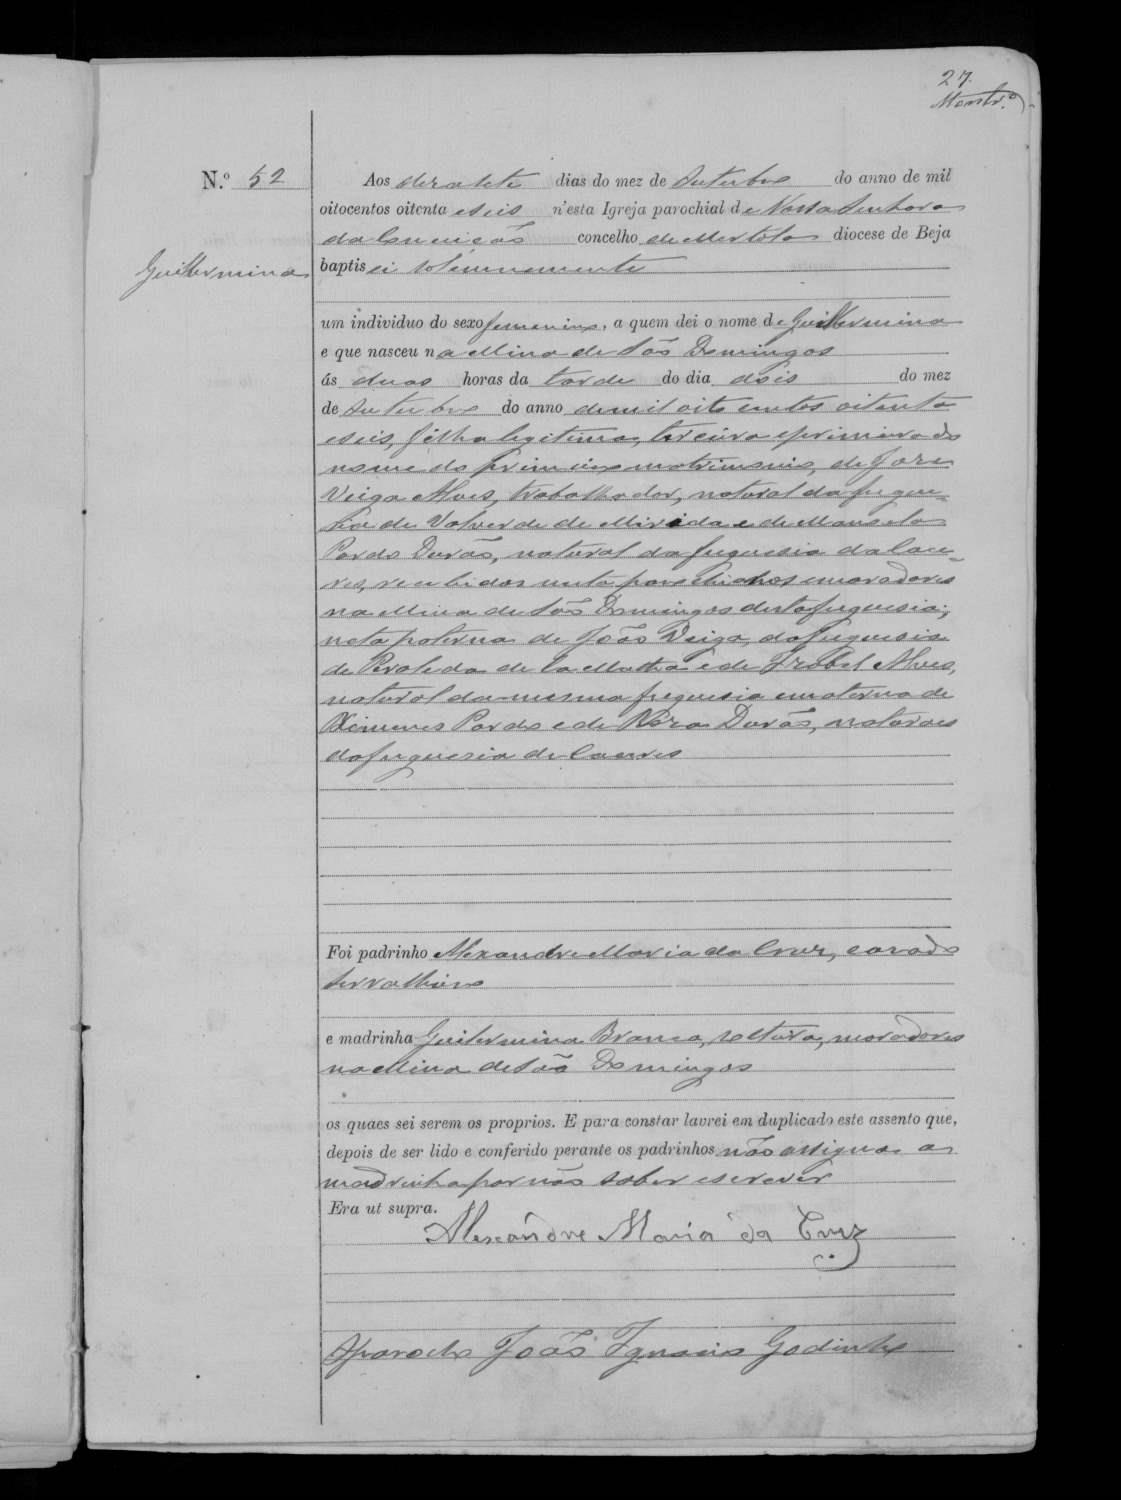 27.
N.º 52
Aos desasete dias do mez de Outubro do anno de mil
oitocentos oitenta e seis n'esta Igreja parochial de Nossa Senhora
da Conceição concelho de Mertola diocese de Beja
Guilhermina
baptisei solemnemente
um individuo do sexo femenino, a quem dei o nome de Guilhermina
e que nasceu na Mina de São Domingos
ás duas horas da tarde do dia dois do mez
de Outubro do anno de mil oito centos oitenta
e seis, filha legitima, terceira e primeira do
nome do primeiro matrimonio, de José
Veiga Alves, trabalhador, natural da fregue-
sia de Valverde de Mirida e de Manuela
Pardo Durão, natural da freguesia da Cace-
res, recebidos nesta parochia e moradores
na Mina de São Domingos desta freguesia;
neta paterna de João Veiga, da freguesia
de Peraleda de la Matta e de Izabel Alves,
natural da mesma freguesia e materna de
Ximenes Pardo e de Durão, naturaes
da freguesia de Caceres
Foi padrinho Alexandre Maria da Cruz, casado
serralheiro
e madrinha Guilermina Branca, solteira, moradores
na Mina de São Domingos
os quaes sei serem os proprios. E para constar lavrei em duplicado este assento que,
depois de ser lido e conferido perante os padrinhos não assigna a
madrinha por não saber escrever
Era ut supra.
Alexandre Maria da Cruz
O Parocho João Ignacio Godinho